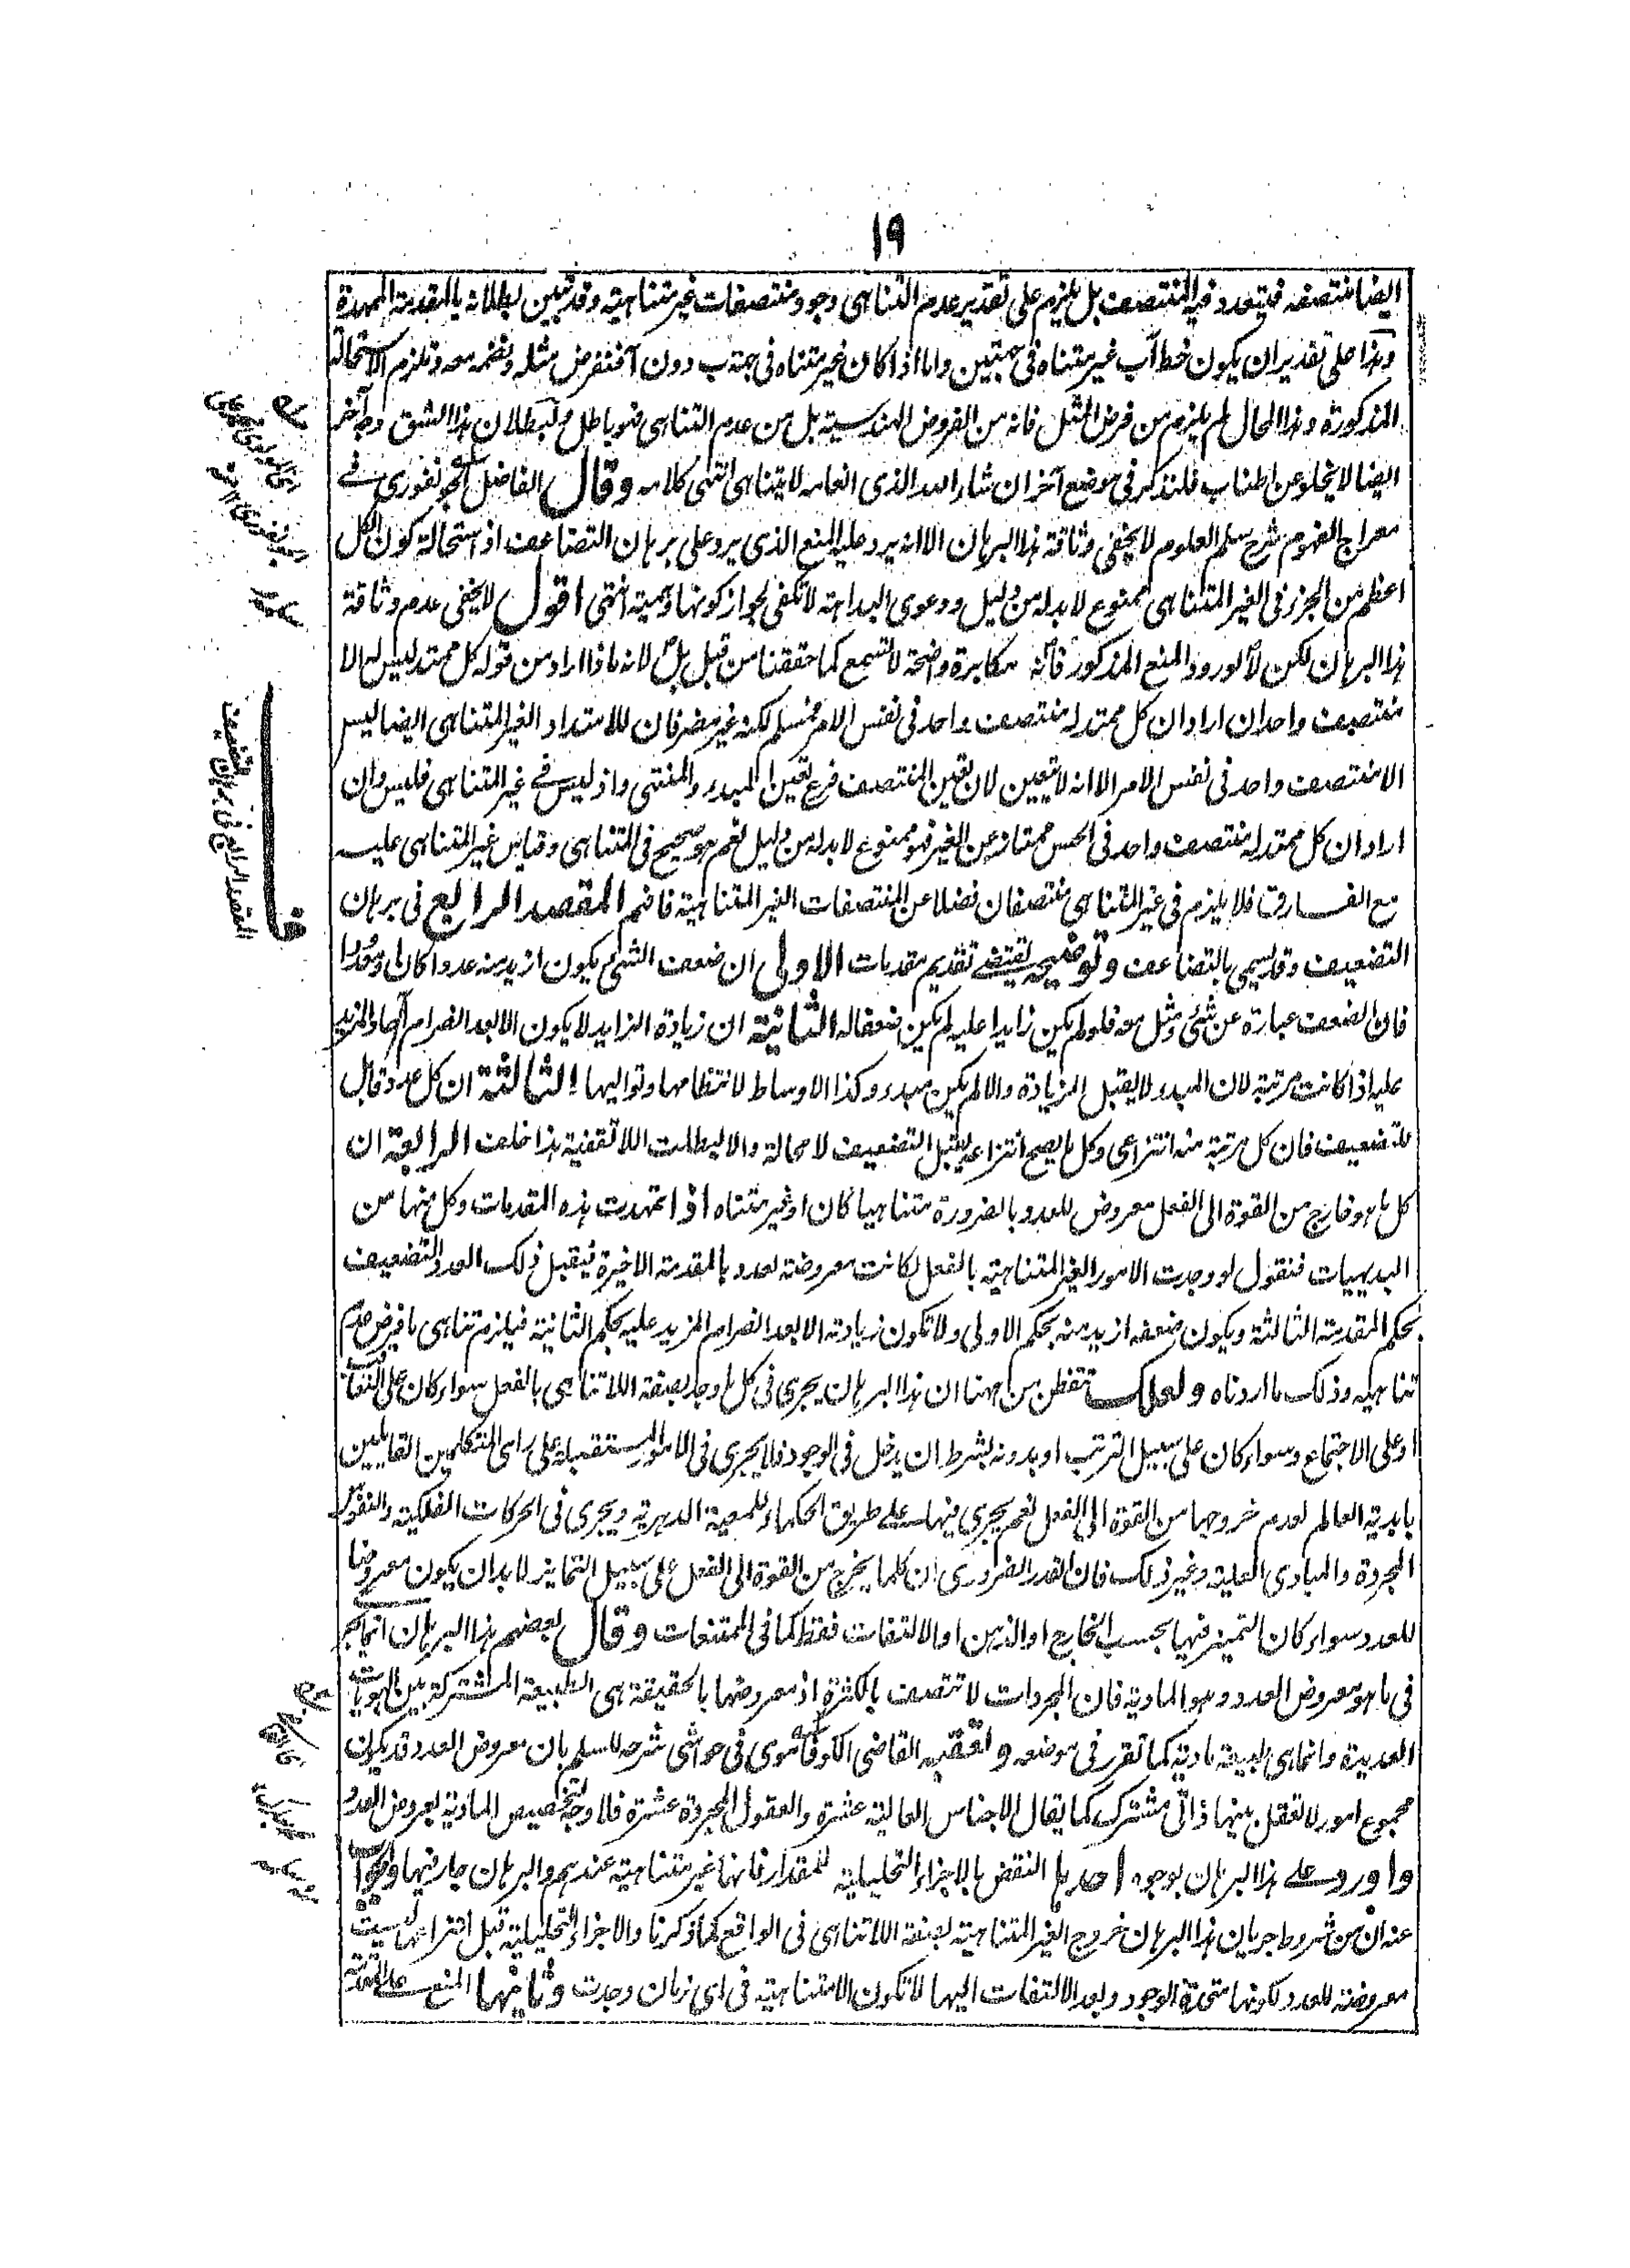 ١٩
ايضا منتصفه فيتعدد فيه المنتصف بل يلزم على تقدير عدم التناهى وجود منتصفات غير متناهية وقد تبين بطلانه بالمقدمة الممهدة
وهذا على تقدير ان يكون خط آب غير متناه فى جهتين واما اذا كان غير متناه فى جهة ب دون آ فنفرض مثله ونضمه معه وتلزم الاستحالة
المذكورة وهذا المحال لم يلزم من فرض المثل فانه من الفروض الهندسية بل من عدم التناهى فهو باطل ولبطلان هذا الشق وجه آخر
ايضا لا يخلو عن اطناب فلنذكر فى موضع آخر ان شاء الله الذى انعامه لا يتناهى انتهى كلامه وقال الفاضل الجونفورى فى
معراج الفهوم شرح سلم العلوم لا يخفى وثاقة هذا البرهان الا انه يرد عليه المنع الذى يرد على برهان التضاعف اذ استحالة كون الكل
اعظم من الجزء فى الغير المتناهى ممنوع لا بد له من دليل ودعوى البداهة لا تكفى لجواز كونها وهمية انتهى اقول لا يخفى عدم وثاقة
هذا البرهان لكن لا لورود المنع المذكور فانه مكابرة واضحة لا تسمع كما حققنا من قبل بل لانه ماذا اراد من قوله كل ممتد ليس له الا
منتصف واحد ان اراد ان كل ممتد له منتصف واحد فى نفس الامر فمسلم لكنه غير مضر فان للامتداد الغير المتناهى ايضا ليس
الا منتصف واحد فى نفس الامر الا انه لا يتعين لان تعين المنتصف فرع تعين المبدء والمنتهى واذ ليس فى غير المتناهى فليس وان
اراد ان كل ممتد له منتصف واحد فى الحس ممتاز عن الغير فهو ممنوع لا بد له من دليل نعم هو صحيح فى المتناهى وقياس غير المتناهى عليه
مع الفارق فلا يلزم فى غير المتناهى منتصفان فضلا عن المنتصفات الغير المتناهية فافهم المقصد الرابع فى برهان
التضعيف وقد يسمى بالتضاعف وتوضيحه يقتضى تقديم مقدمات الاولى ان ضعف الشئ يكون ازيد منه عددا كان او مقدارا
فان الضعف عبارة عن شئ ومثل معه فلو لم يكن زايدا عليه لم يكن ضعفا له الثانية ان زيادة الزايد لا يكون الا بعد انصرام آحاد المزيد
عليه اذا كانت مرتبة لان المبدء لا يقبل الزيادة والا لم يكن مبدء وكذا الاوساط لانتظامها وتواليها الثالثة ان كل عدد قابل
للتضعيف فان كل مرتبة منه انتزاعى وكل ما يصح انتزاعه يقبل التضعيف لا محالة والا ليبطلت اللاتقفية هذا خلف الرابعة ان
كل ما هو خارج من القوة الى الفعل معروض للعدد بالضرورة متناهيا كان او غير متناه اذا تمهدت هذه المقدمات وكل منها من
البديهيات فنقول لو وجدت الامور الغير المتناهية بالفعل لكانت معروضة لعدد بالمقدمة الاخيرة فيقبل ذلك العدد التضعيف
بحكم المقدمة الثالثة ويكون ضعفه ازيد منه بحكم الاولى ولا تكون زيادته الا بعد انصرام المزيد عليه بحكم الثانية فيلزم تناهى ما فرض عدم
تناهيه وذلك ما اردناه ولعلك تتفطن من ههنا ان هذا البرهان يجرى فى كل ما وجد بصفة اللاتناهى بالفعل سواء كان على التعاقب
او على الاجتماع وسواء كان على سبيل الترتب او بدونه بشرط ان يدخل فى الوجود فلا يجرى فى الامور المستقبلة على راى المتكلمين القايلين
بابدية العالم لعدم خروجها من القوة الى الفعل نعم يجرى فيها على طريق الحكماء للمعية الدهرية ويجرى فى الحركات الفلكية والنفوس
المجردة والمبادى العلية وغير ذلك فان القدر الضرورى ان كلما يخرج من القوة الى الفعل على سبيل التمايز لا بد ان يكون معروضا
للعدد سواء كان التميز فيها بحسب الخارج او الذهن او الالتفات فقط كما فى الممتنعات وقال بعضهم هذا البرهان انما يجرى
فى ما هو معروض العدد وهو المادية فان المجردات لا تتصف بالكثرة اذ معروضها بالحقيقة هى الطبيعة المشتركة بين الهويات
العديدة وانما هى طبيعة مادية كما تقرر فى موضعه وتعقبه القاضى الكوفاموى فى حواشى شرحه للسلم بان معروض العدد قد يكون
مجموع امور لا تعقل بينها ذاتى مشترك كما يقال الاجناس العالية عشرة والعقول المجردة عشرة فلا وجه لتخصيص المادية بعروض العدد
واورد على هذا البرهان بوجوه احدها النقض بالاجزاء التحليلية للمقدار فانها غير متناهية عندهم والبرهان جار فيها والجواب
عنه ان من شروط جريان هذا البرهان خروج الغير المتناهية بصفة اللاتناهى فى الواقع كما ذكرنا والاجزاء التحليلية قبل انتزاعها ليست
معروضة للعدد لكونها متحدة الوجود وبعد الالتفات اليها لا تكون الا متناهية فى اى زمان وجدت وثانيها المنع على المقدمة
المقصد الرابع فى برهان التضعيف